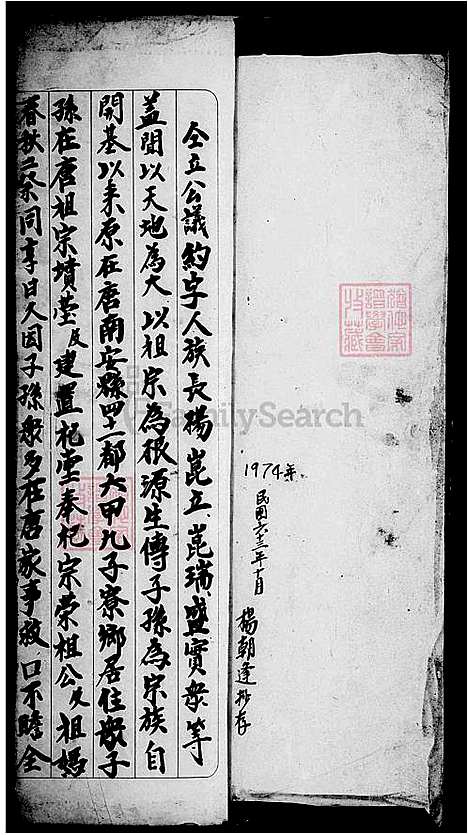 1974年
民國六十三年十月
楊朝逢抄存
仝立公議約字人族長楊崑立崑瑞盛實衆等
蓋聞以天地為大以祖宗為根源生傳子孫為宗族自
開基以来原在唐南安縣四十一都大甲九子寮鄉居住衆子
孫在唐祖宗墳塋及建置祀堂奉祀宗荣祖公及祖媽
春秋二祭同享日久因子孫衆多在唐家事 口不瞻全
FamilySearch